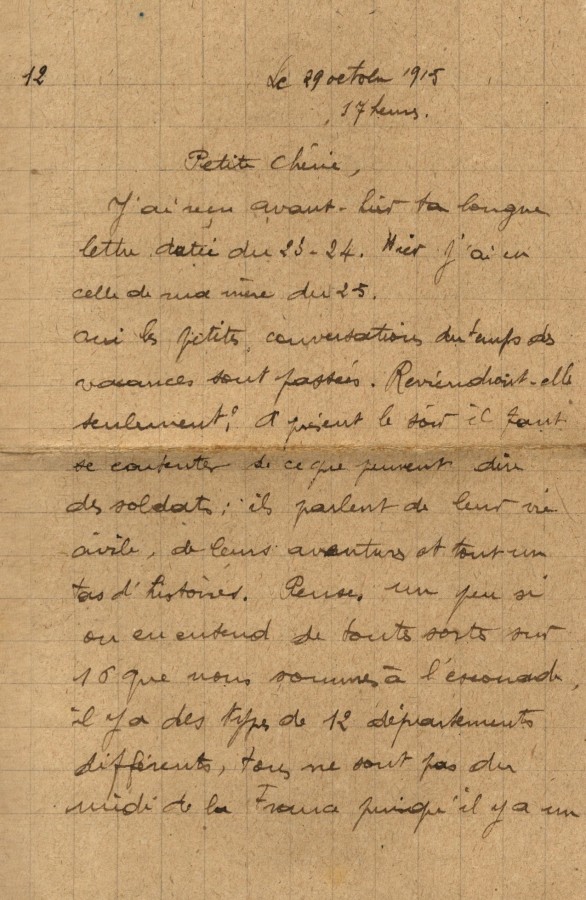 12
Le 29 octobre 1915
17 heures.
Petite Chérie,
J'ai reçu avant-hier ta longue
lettre datée du 23-24. Hier j'ai eu
celle de ma mère du 25.
oui les petites conversations du temps des
vacances sont passées. Reviendront-elle
seulement? A présent le soir il faut
se contenter de ce que peuvent dire
des soldats; ils parlent de leur vie
civile, de leurs aventures et tout un
tas d'histoires. Pense, un peu si
on en entend de toutes sortes sur
16 que nous sommes à l'escouade,
il y a des types de 12 départements
différents, tous ne sont pas du
midi de la France puisqu'il y a un